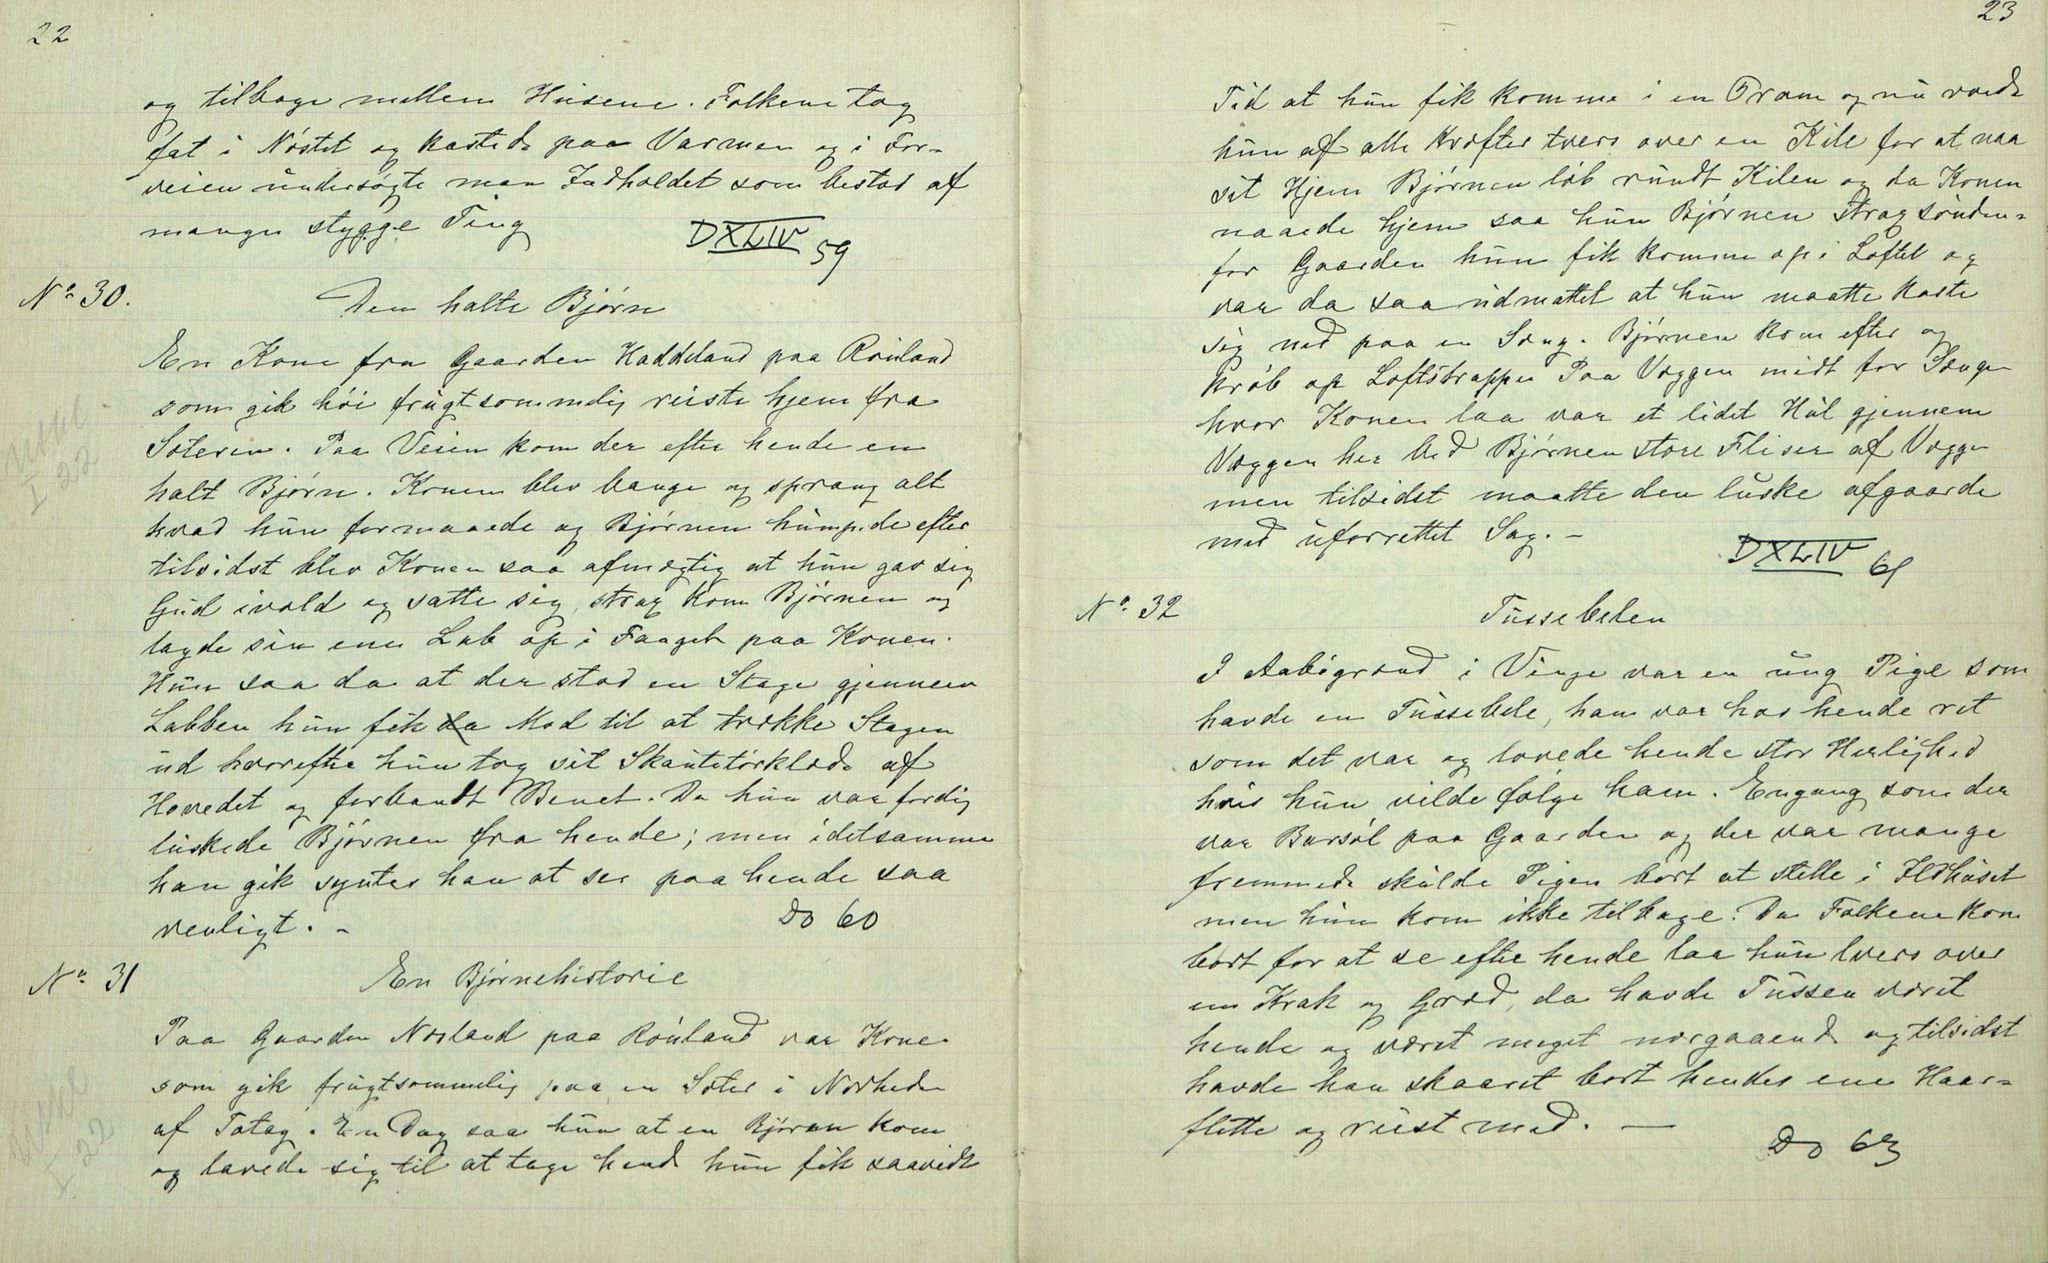 22
og tilbage mellem Husene. Folkene tog
fat i Nøstet og kastede paa Varmen og i For-
veien undersøgte man Indholdet som bestod af
mange stygge Ting
DXLIV 59
No 30.
Den halte Bjørn
En Kone fra Gaarden Haddeland paa Rauland
som gik høi frugtsommelig reiste hjem fra
Sæteren. Paa Veien kom der efter hende en
halt Bjørn. Konen blev bange og sprang alt
hvad hun formaaede og Bjørnen humpede efter
tilsidst blev Konen saa afmægtig at hun gav sig
Gud ivold og satte sig, strax kom Bjørnen og
lagde sin ene Lab op i Fanget paa Konen.
Hun saa da at der stod en Stage gjennem
Labben hun fik da Mod til at trække Stagen
ud hvorefter hun tog sit Skautetørklæde af
Hovedet og forbandt Benet. Da hun var færdig
luskede Bjørnen fra hende; men idetsamme
han gik syntes han at see paa hende saa
venligt. -
Do 60
No 31
En Bjørnehistorie
Paa Gaarden Næsland paa Rauland var Kone
som gik frugtsommelig paa en Sæter i Nærheden
af Totag. En Dag saa hun at en Bjørnn kom
og lavede sig til at tage hend hun fik saavidt
I 22
I 22
23
Tid at hun fik komme i en Pram og nu roede
hun af alle Kræfter tvers over en Kile for at naa
sit Hjem Bjørnen løb rundt Kilen og da Konen
naaede hjem saa hun Bjørnen strax sønden-
for Gaarden hun fik komme op i Loftet og
var da saa udmattet at hun maatte kaste
sig ned paa en Seng. Bjørnen kom efter og
krøb op Loftstrappen Paa Væggen midt for Sengen
hvor Konen laa var et lidet Hul gjennem
Væggen her bed Bjørnen store Fliser af Væggen
men tilsidst maatte den luske afgaarde
med uforrettet Sag. -
DXLIV 61
No 32
Tussebelen
I Aabøgrend i Vinje var en ung Pige som
havde en Tussebele, han var hos hende ret
som det var og lovede hende stor Herlighed
hvis hun vilde følge ham. Engang som der
var Barsøl paa Gaarden og der var mange
fremmede skulde Pigen bort at stelle i Ildhuset
men hun kom ikke tilbage. Da Folkene kom
bort for at se efter hende laa hun tvers over
en Krak og Græd, da havde Tussen været
hende og været meget nærgaaende og tilsidst
havde han skaaret bort hendes ene Haar-
flette og reist med. —
Do 63